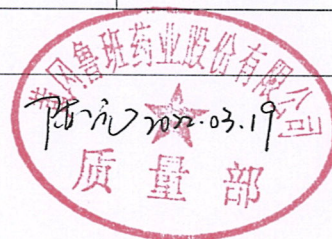 黄冈鲁班药业股份有限公司
2022.03.19
质量部